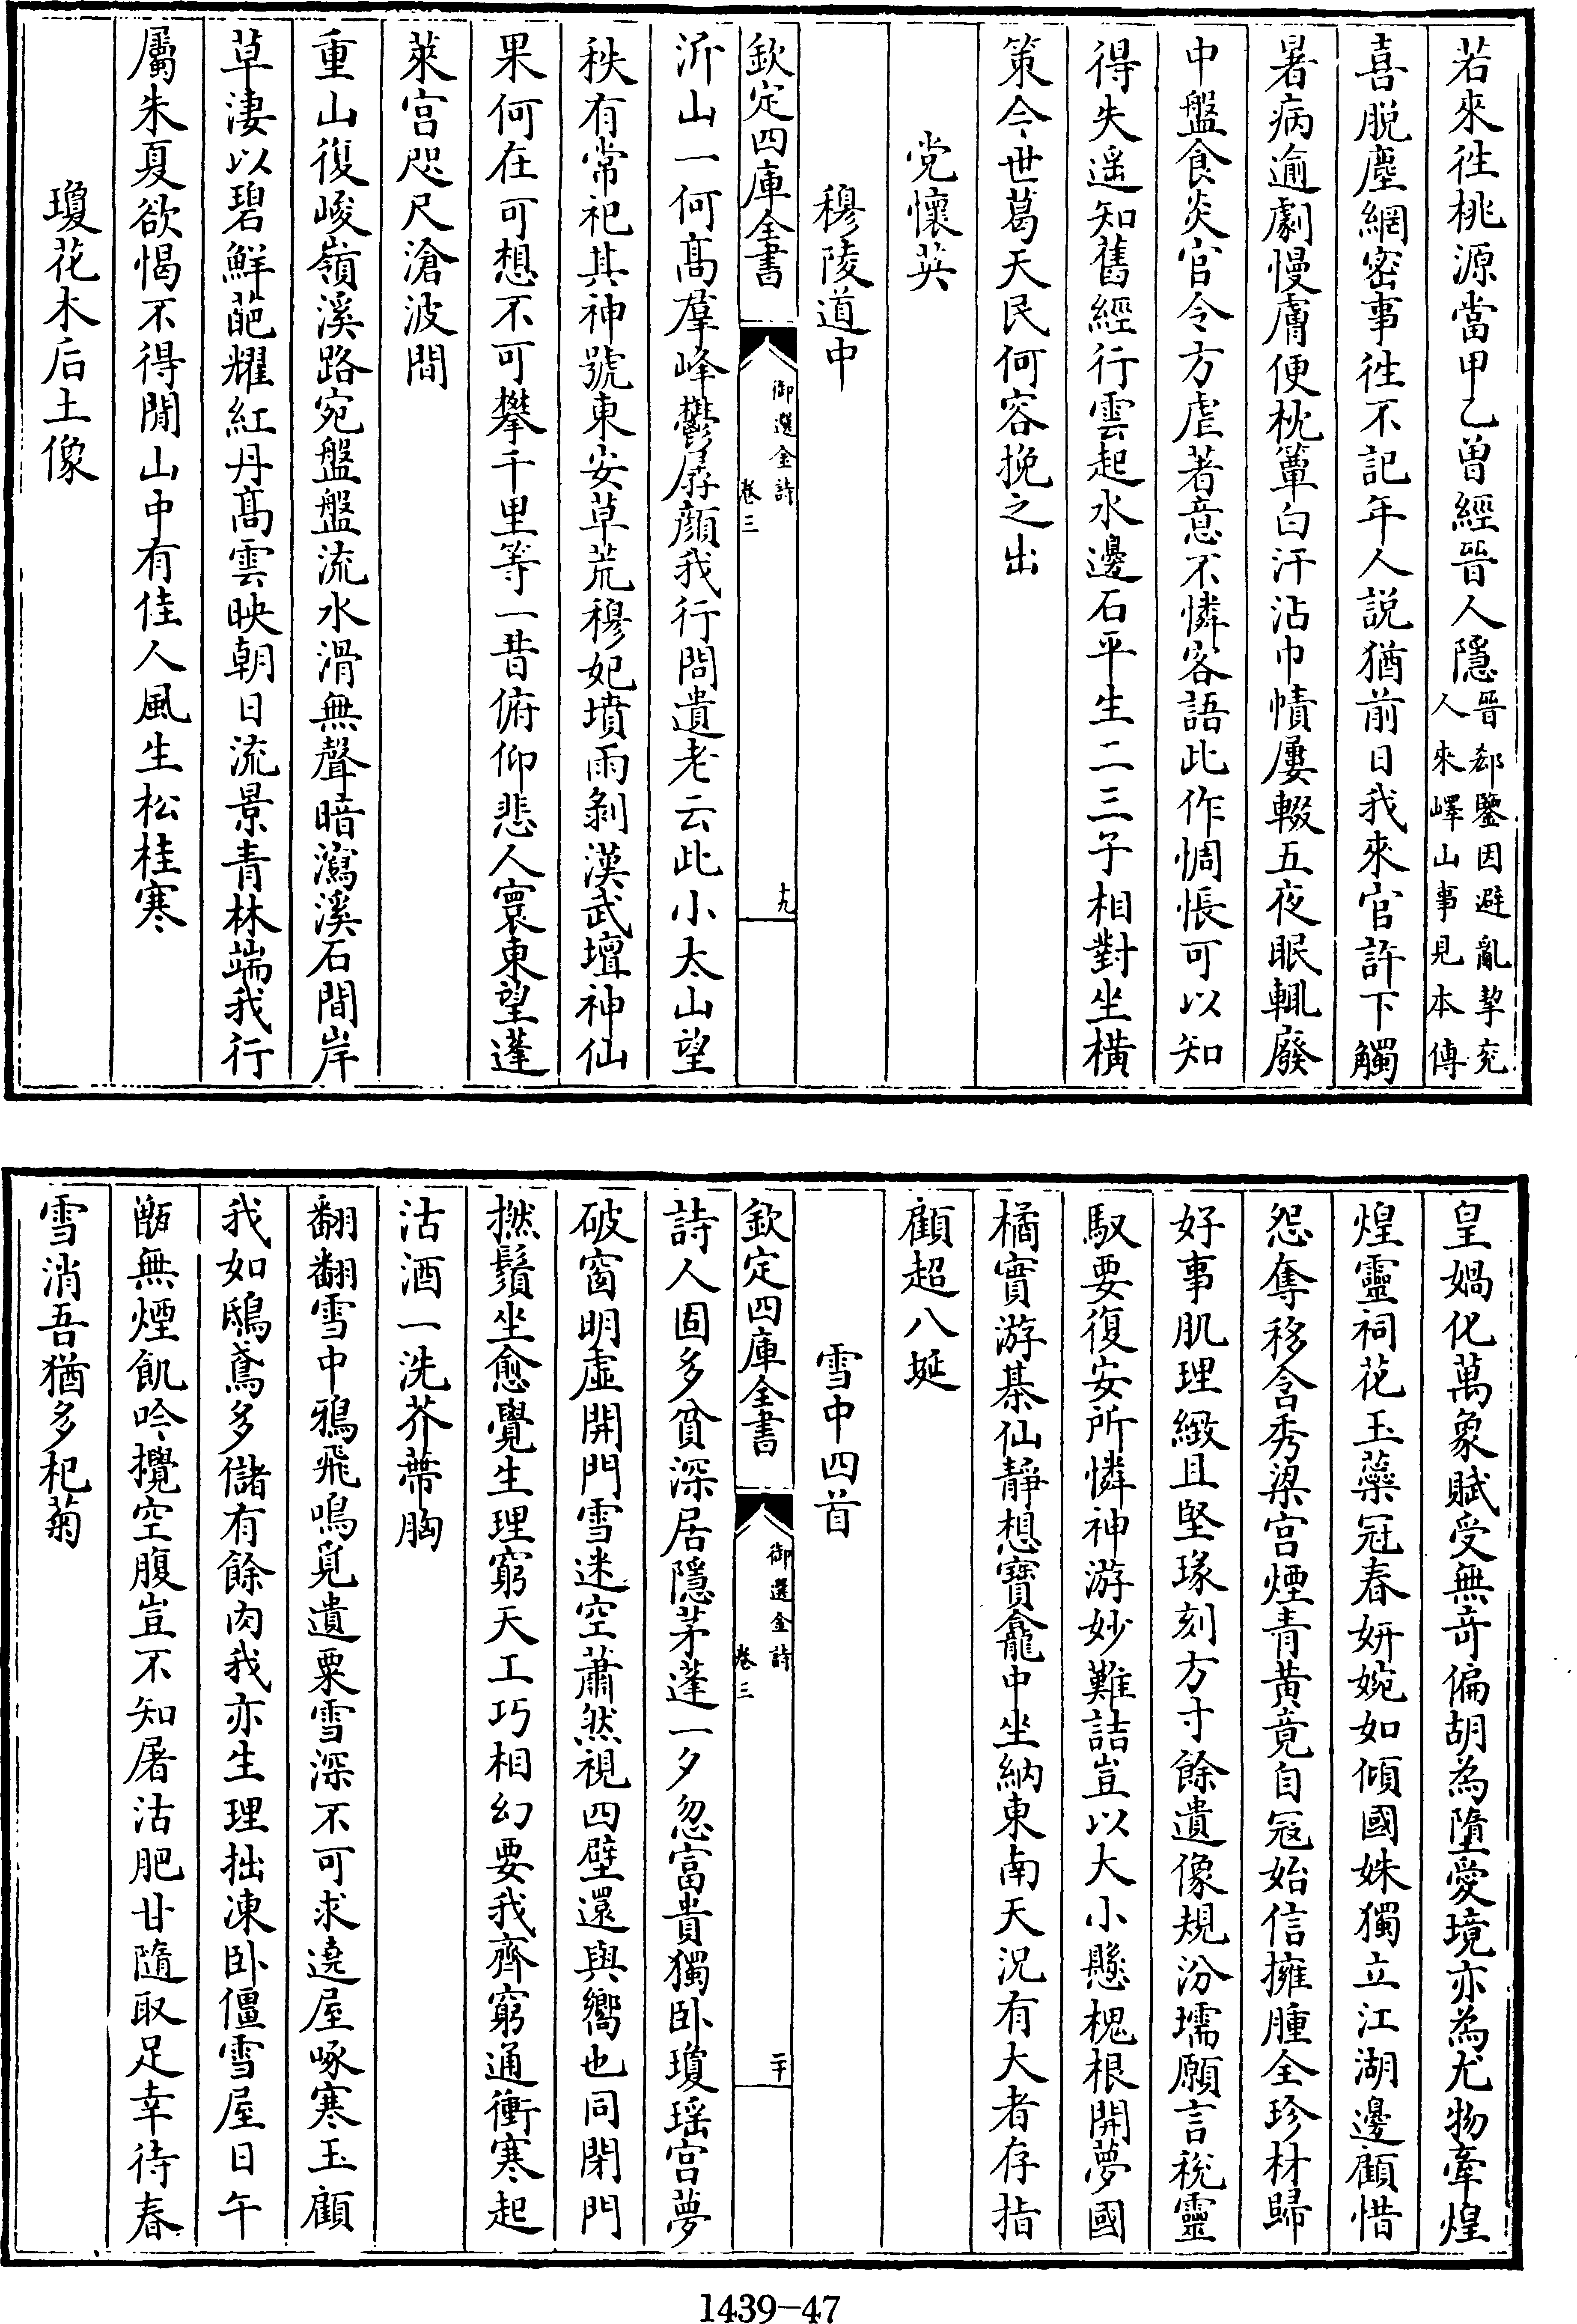 若來徃桃源當甲乙曽經晉人隱晉郄鑒因避亂挈兖人來嶧山事見本傳
喜脱塵網密事徃不記年人説猶前日我來官許下觸
暑病逾劇慢膚便枕簟白汗沾巾幘屢輟五夜眠輒廢
中盤食炎官令方虐著意不憐客語此作惆悵可以知
得失遥知舊經行雲起水邊石平生二三子相對坐横
策今世葛天民何容挽之出
党懷英
穆陵道中
欽定四庫全書
御選金詩
卷三
十九
沂山一何髙羣峰鬱孱顔我行問遺老云此小太山望
秩有常祀其神號東安草荒穆妃墳雨剝漢武壇神仙
果何在可想不可攀千里等一昔俯仰悲人寰東望蓬
萊宫咫尺滄波間
重山復峻嶺溪路宛盤盤流水滑無聲暗瀉溪石間岸
草淒以碧鮮葩耀紅丹髙雲映朝日流景青林端我行
屬朱夏欲愒不得閒山中有佳人風生松桂寒
瓊花木后土像
皇媧化萬象賦受無竒偏胡為墮愛境亦為尤物牽煌
煌靈祠花玉蘂冠春妍婉如傾國姝獨立江湖邊顧惜
怨奪移含秀梁宫煙青黄竟自冦始信擁腫全珍材歸
好事肌理緻且堅瑑刻方寸餘遺像規汾壖願言税靈
馭要復安所憐神游妙難詰豈以大小懸槐根開夢國
橘實游棊仙靜想寶龕中坐納東南天況有大者存指
顧超八埏
雪中四首
欽定四庫全書
御選金詩
卷三
二十
詩人固多貧深居隱茅蓬一夕忽富貴獨卧瓊瑶宫夢
破窗明虛開門雪迷空蕭然視四壁還與嚮也同閉門
撚鬚坐愈覺生理窮天工巧相幻要我齊窮通衝寒起
沽酒一洗芥蔕胸
翻翻雪中鴉飛鳴覓遺粟雪深不可求遶屋啄寒玉顧
我如鴟鳶多儲有餘肉我亦生理拙凍卧僵雪屋日午
甑無煙飢吟攪空腹豈不知屠沽肥甘隨取足幸待春
雪消吾猶多杞菊
1439-47